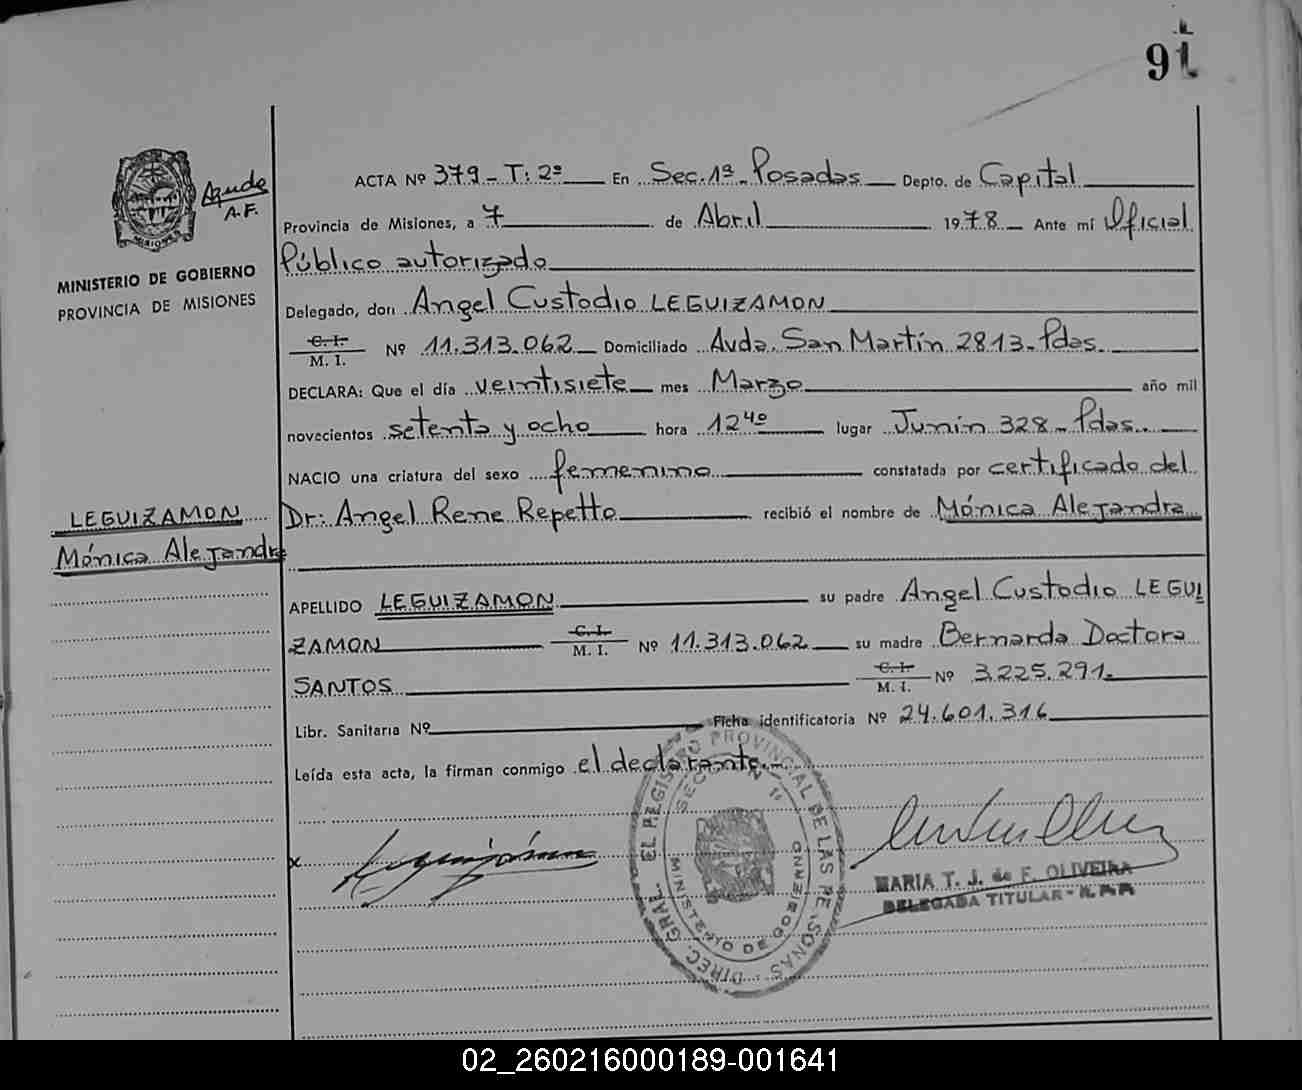 91
ACTA Nº 379 - T: 2º En Sec. 1ª - Posadas Depto. de Capital
A.F.
Provincia de Misiones, a 7 de Abril 1978 Ante mí Oficial
Público autorizado
MISIONES
MINISTERIO DE GOBIERNO
PROVINCIA DE MISIONES
Delegado, don Angel Custodio LEGUIZAMON
C. I.
M. I. Nº 11.313.062 Domiciliado Avda. San Martín 2813 - Pdas.
DECLARA: Que el día veintisiete mes Marzo año mil
novecientos setenta y ocho hora 12 40 lugar Junín 328 - Pdas.
NACIO una criatura del sexo femenino constatada por certificado del
LEGUIZAMON
Mónica Alejandra
Dr: Angel Rene Repetto recibió el nombre de Mónica Alejandra
APELLIDO LEGUIZAMON su padre Angel Custodio LEGUI
ZAMON C. I. M. I. Nº 11.313.062 su madre Bernarda Doctora
SANTOS C. I. M. I. Nº 3.225.291.
Libr. Sanitaria Nº Ficha identificatoria Nº 24.601.316
Leída esta acta, la firman conmigo el declarante.-
x Leguizamon
DIREC. GRAL. EL REGISTRO PROVINCIAL DE LAS PERSONAS
SECCION 1ª
MINISTERIO DE GOBIERNO
MARIA T. J. de F. OLIVEIRA
DELEGADA TITULAR -
02_260216000189-001641